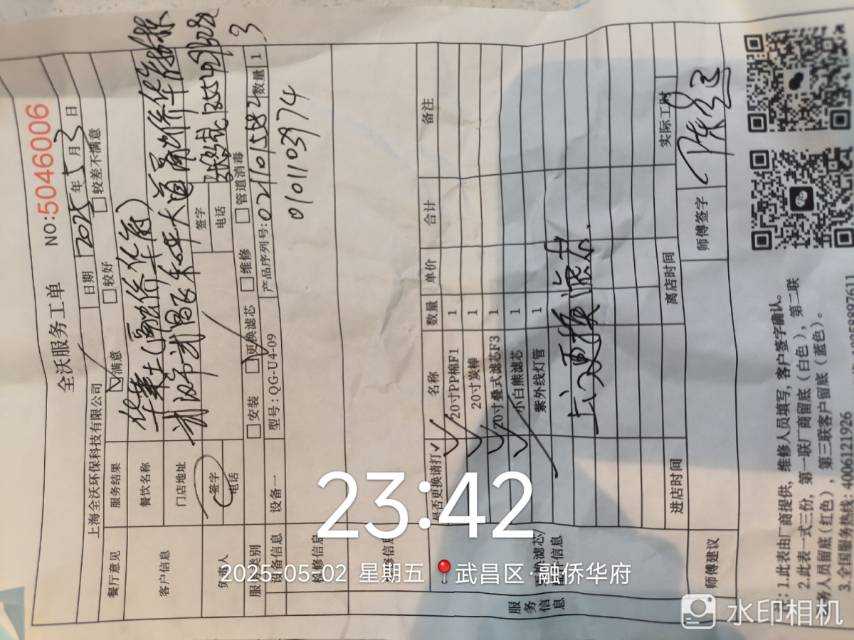 全沃服务工单
NO:5046006
上海全沃环保科技有限公司
日期 2025年5月3日
餐厅意见 服务结果 ☑满意 □较好 □较差不满意
客户信息 餐饮名称 华莱士(融侨华府)
门店地址
签字 电话 签字 电话
服务类别 □安装 ☑更换滤芯 □维修 □管道消毒
设备信息 设备一 型号:QG-U4-09 产品序列号: 数量 1
0101103974
维修信息
是否更换请打✓ 名称 数量 单价 合计 备注
✓ 20寸PP棉F1 1
✓ 20寸炭棒 1
✓ 20寸叠式滤芯F3 1
✓ 小白熊滤芯 1
紫外线灯管 1
服务信息
上门更换滤芯.
进店时间 离店时间 实际工时
师傅建议 师傅签字
注:1.此表由厂商提供,维修人员填写,客户签字确认。
2.此表一式三份,第一联厂商留底(白色),第二联
务人员留底(红色),第三联客户留底(蓝色)。
3.全国服务热线:4006121926
23:42
2025.05.02 星期五 武昌区·融侨华府
水印相机